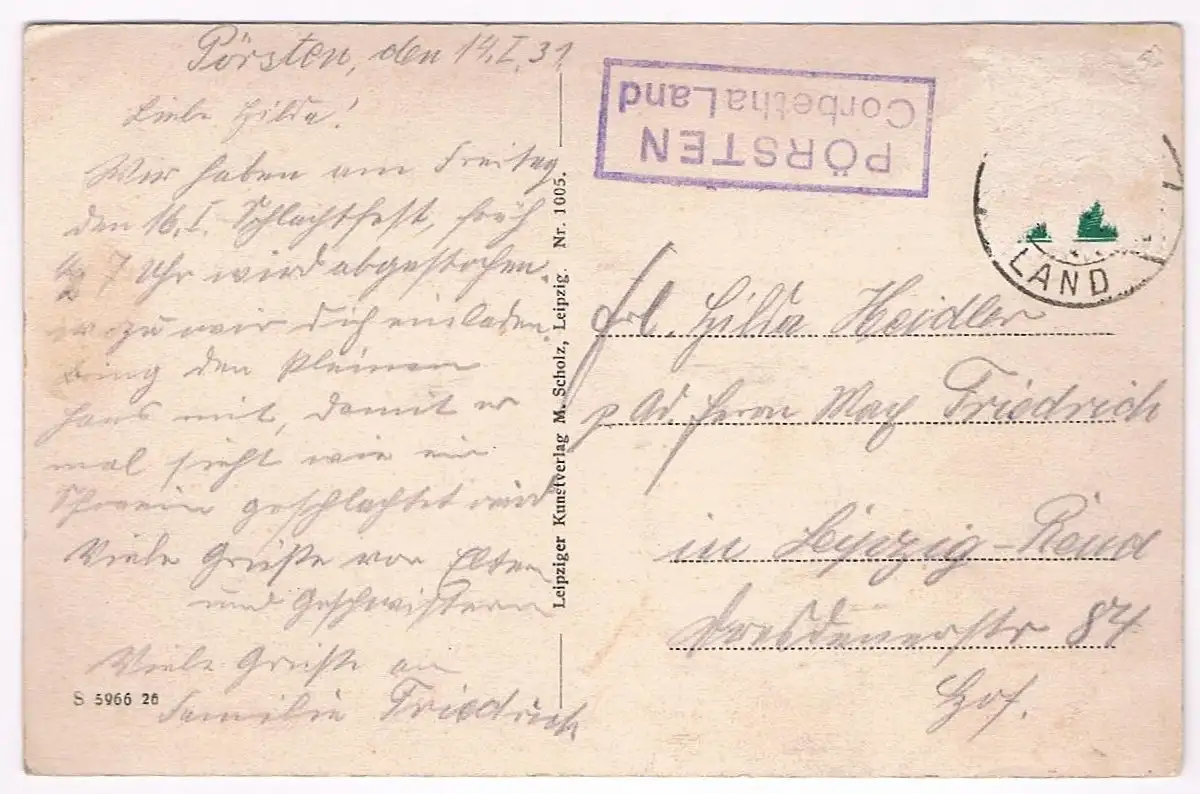 Pörsten, den 14.I.31
Liebe Hilda!
Wir haben am Freitag
den 16.I. Schlachtfest, früh
7 Uhr wird abgestochen.
wozu wir dich einladen.
bring den kleinen
Hans mit, damit er
mal sieht wie ein
Schwein geschlachtet wird
Viele Grüße von Eltern
und Geschwistern
Viele Grüße an
Familie Friedrich
S 5966 26
Leipziger Kunstverlag M. Scholz, Leipzig. Nr. 1005.
PÖRSTEN
Corbetha Land
LAND
Frl. Hilda Heidler
p Ad. Herrn Max Friedrich
in Leipzig Reud
Dresdenerstr 84
Hof.